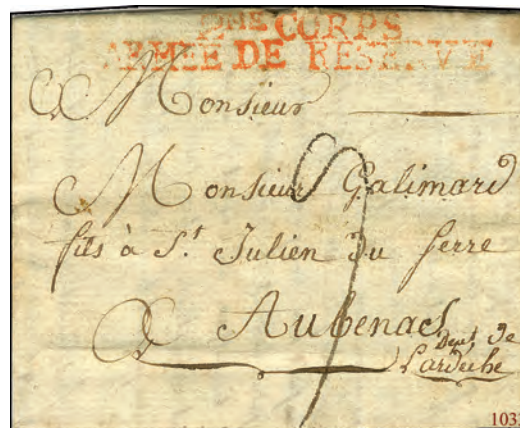 2ME CORPS
ARMÉE DE RESERVE
A Monsieur
Monsieur Galimard
fils à St Julien du Serre
A Aubenas
Dept de
Lardeche
103